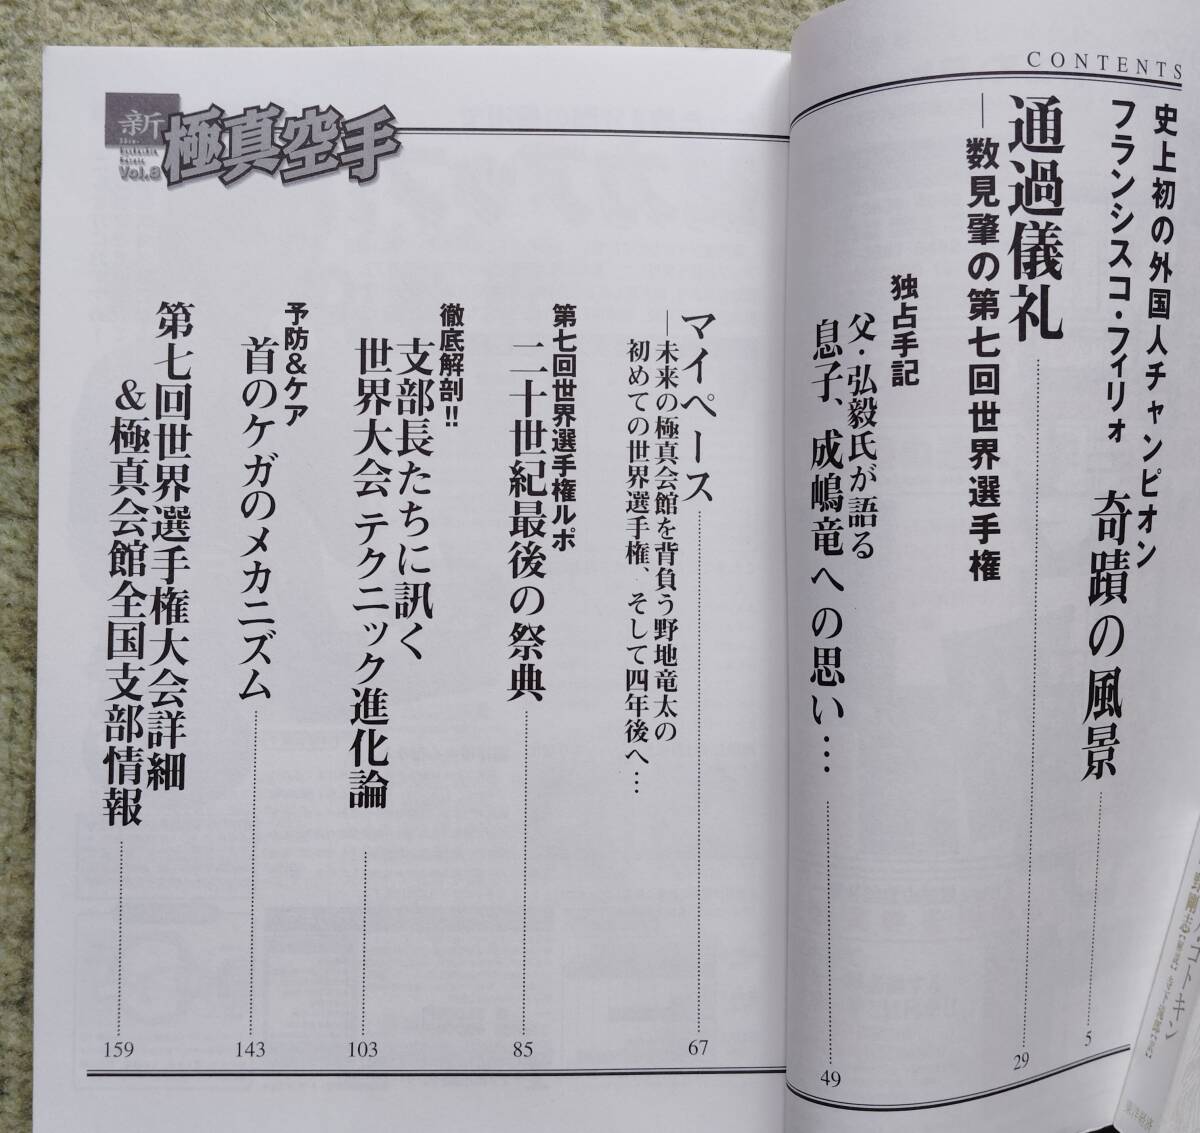 CONTENTS
史上初の外国人チャンピオン
フランシスコ・フィリォ 奇蹟の風景
5
通過儀礼
―数見肇の第七回世界選手権
29
独占手記
父・弘毅氏が語る
息子、成嶋竜への思い…
49
新
極真空手
Vol.8
マイペース
―未来の極真会館を背負う野地竜太の
初めての世界選手権、そして四年後へ…
67
第七回世界選手権ルポ
二十世紀最後の祭典
85
徹底解剖!!
支部長たちに訊く
世界大会 テクニック進化論
103
予防&ケア
首のケガのメカニズム
143
第七回世界選手権大会詳細
&極真会館全国支部情報
159